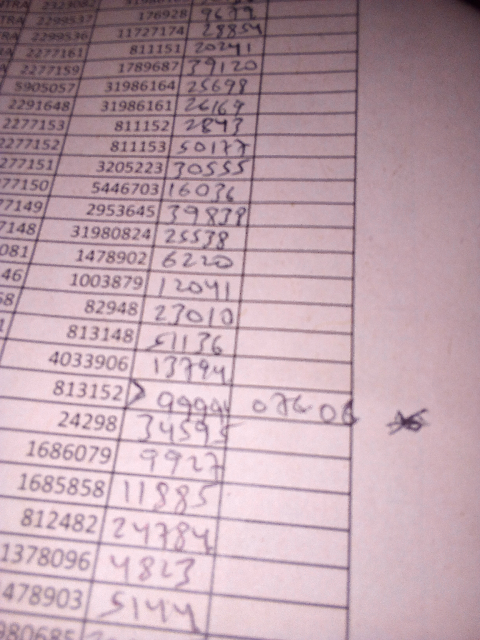 TRA 2323082
TRA 2299537 176928 9679
TRA 2299536 11727174 28854
2277161 811151 20241
2277159 1789687 39120
5905057 31986164 25698
2291648 31986161 26169
2277153 811152 2843
2277152 811153 50177
277151 3205223 30555
77150 5446703 16036
77149 2953645 39838
7148 31980824 25538
081 1478902 6220
46 1003879 12041
58 82948 23010
813148 51136
4033906 13794
813152 9999 076 06
24298 34595
1686079 9927
1685858 11885
812482 24784
1378096 4823
478903 5144
980685